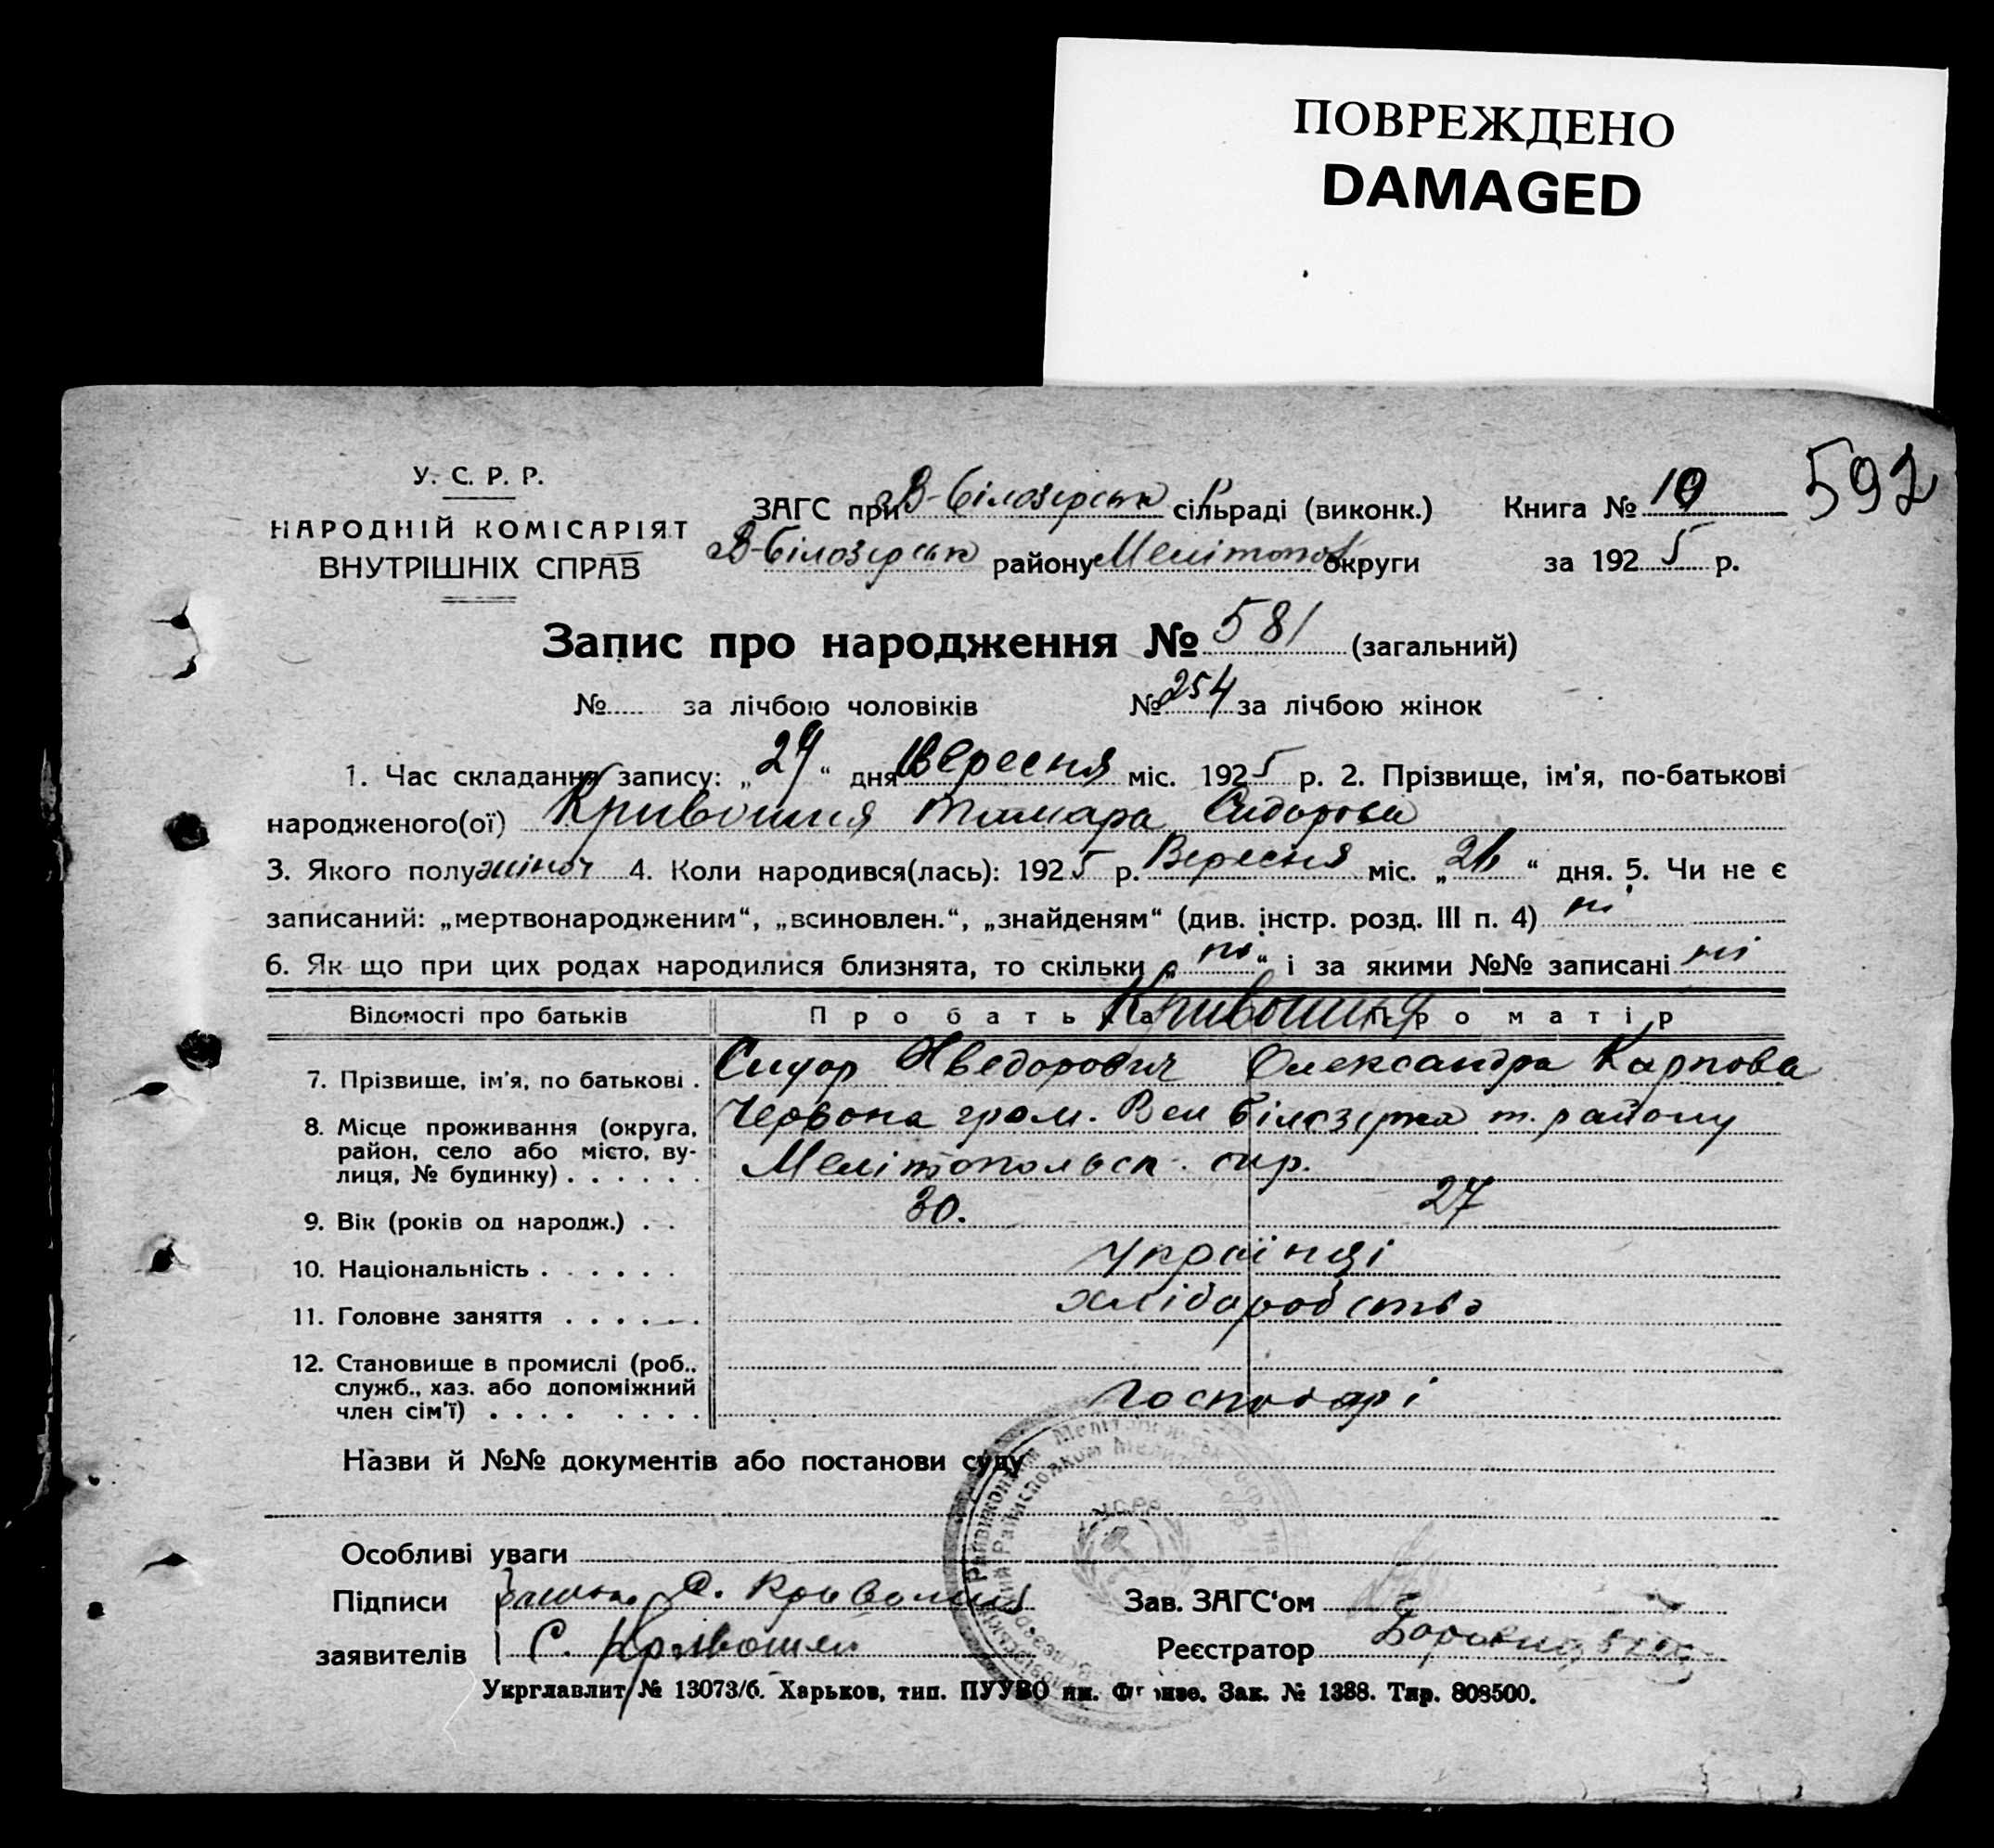 ПОВРЕЖДЕНО
DAMAGED
592
У. С. Р. Р.
НАРОДНІЙ КОМІСАРІЯТ
ВНУТРІШНІХ СПРАВ
ЗАГС при В-Білозірськ сільраді (виконк.) Книга № 10
В-Білозірськ району Мелітопол округи за 1925 р.
Запис про народження № 581 (загальний)
№ за лічбою чоловіків № 254 за лічбою жінок
1. Час складання запису: „29“ дня Вересня міс. 1925 р. 2. Прізвище, ім'я, по-батькові
народженого(ої) Кривошия Тамара Сидорова
3. Якого полу жіноч 4. Коли народився(лась): 1925 р. Вересня міс. „26“ дня. 5. Чи не є
записаний: „мертвонародженим“, „всиновлен.“, „знайденям“ (див. інстр. розд. III п. 4) ні
6. Як що при цих родах народилися близнята, то скільки „ні“ і за якими №№ записані ні
Відомості про батьків Про батька Про матір
Кривошия
7. Прізвище, ім'я, по батькові . Сидор Хведорович Олександра Карпова
8. Місце проживання (округа, район, село або місто, вулиця, № будинку) . . . . . . Червона гром. Вел Білозірка т. району
Мелітопольськ. окр.
9. Вік (років од народж.) . . 30. 27
10. Національність . . . . . . Українці
11. Головне заняття . . . . . . хліборобство
12. Становище в промислі (роб., служб., хаз. або допоміжний член сім'ї) . . . . . . . . Господарі
Назви й №№ документів або постанови суду
УСРР
Особливі уваги
Підписи Кривошия Зав. ЗАГС'ом
заявителів С. Кривошея Реєстратор
Укрглавліт № 13073/6. Харьков, тип. ПУУВО им. Фрунзе. Зак. № 1388. Тир. 808500.